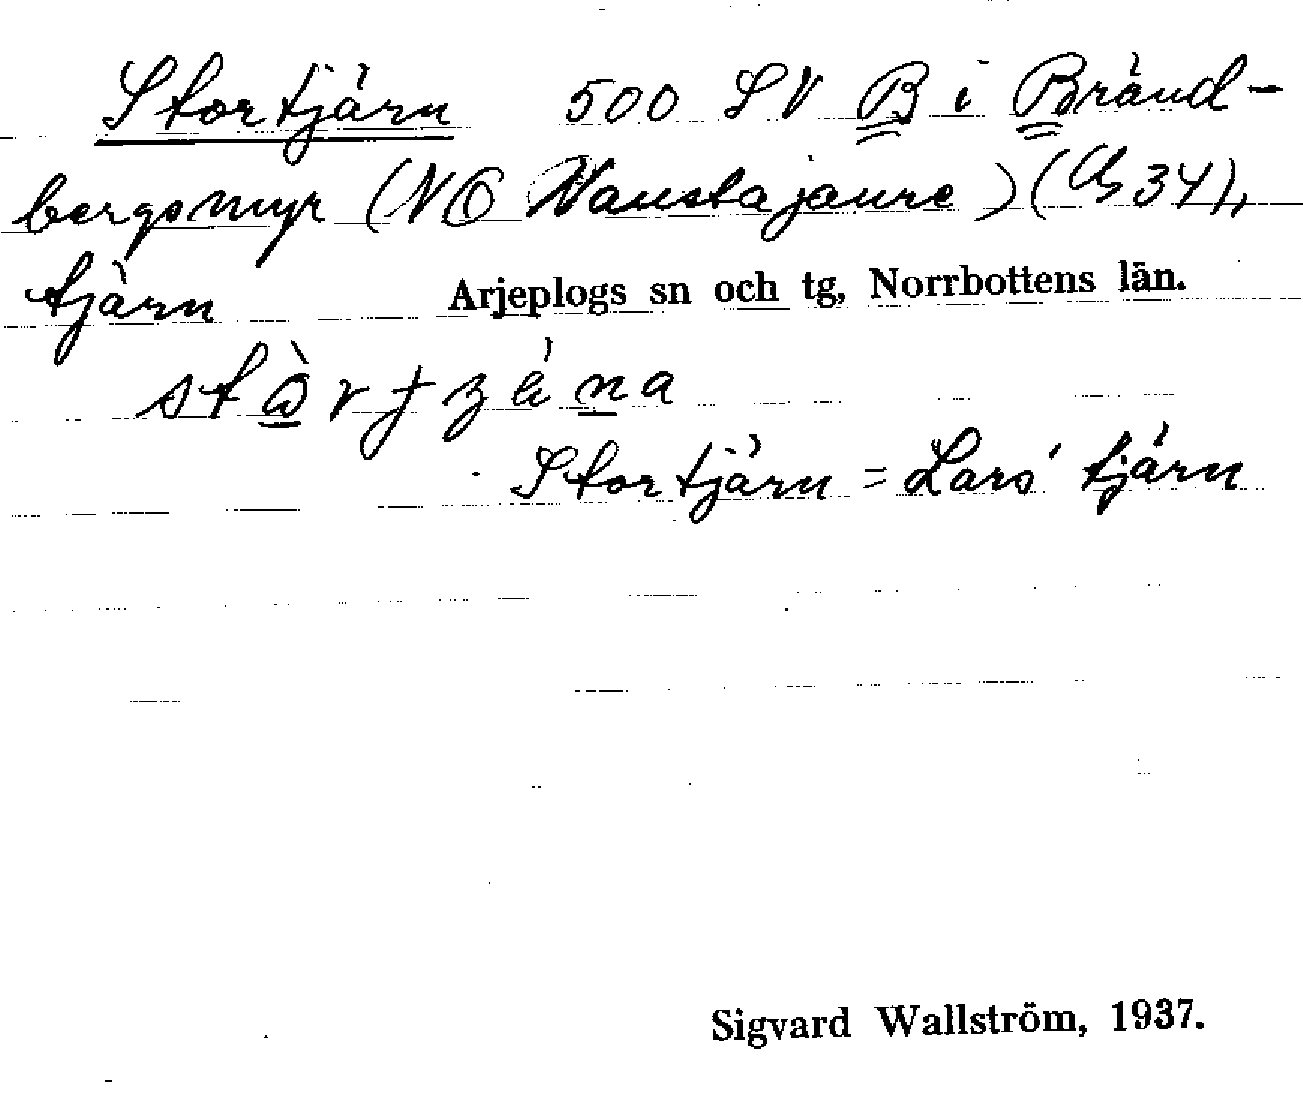 Stortjärn 500 SV B i Bränd-
bergsmyr (NO Naustajaure) (34),
tjärn Arjeplogs sn och tg, Norrbottens län.
Stortjärn = Lars' tjärn
Sigvard Wallström, 1937.